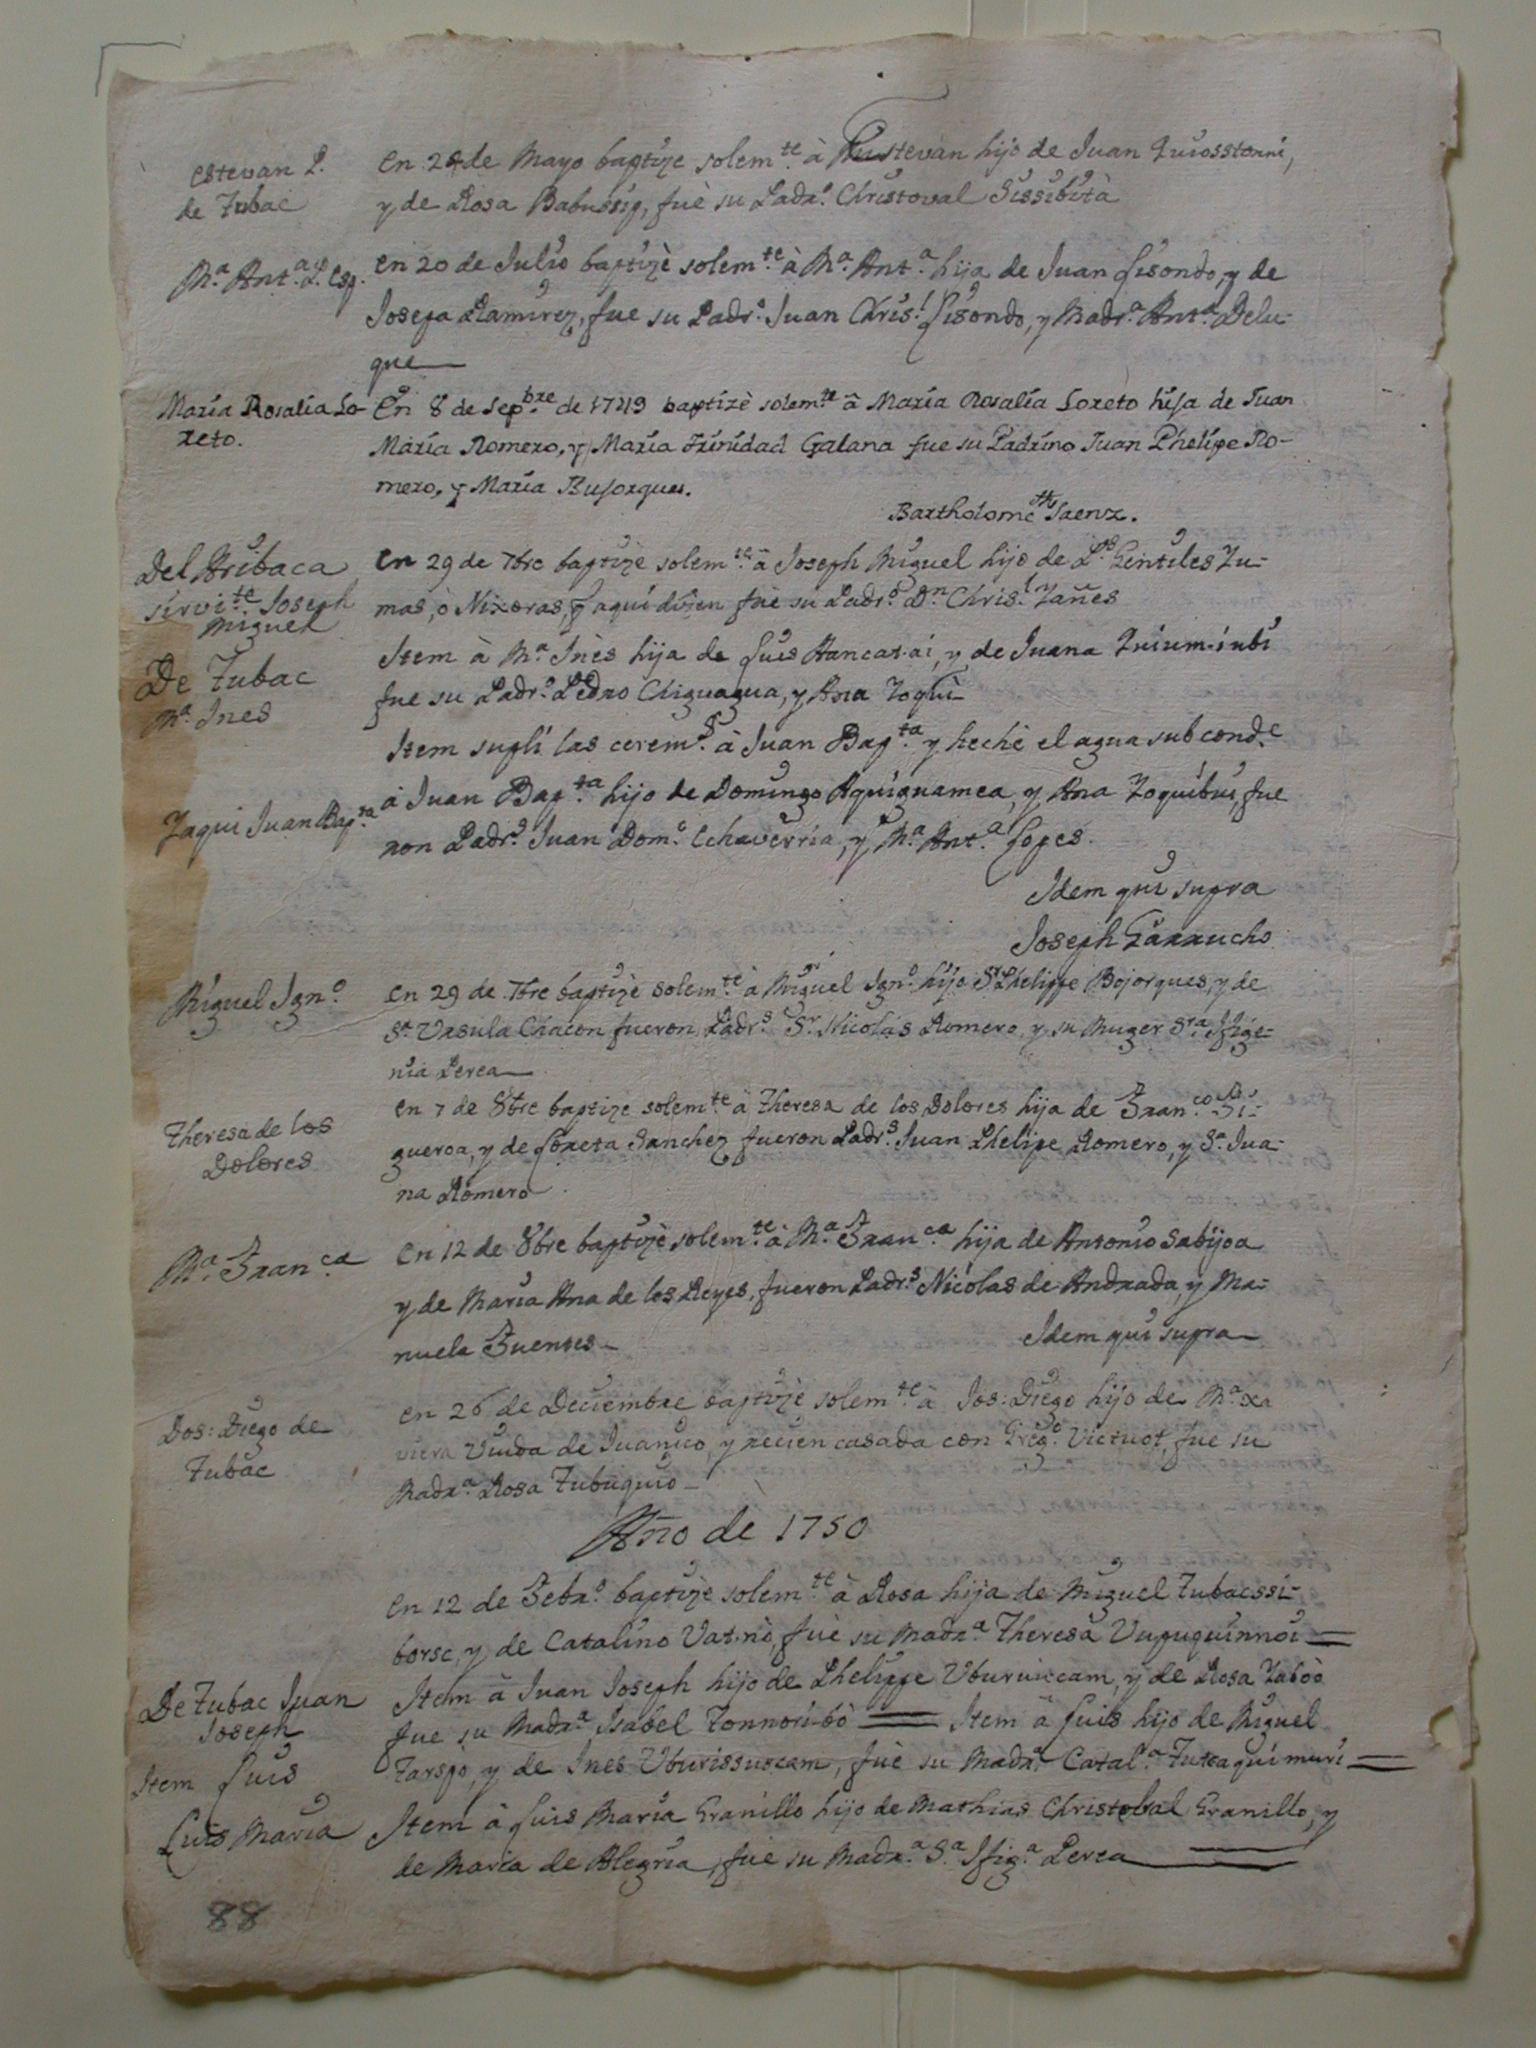 Estevan P. de Tubac
En 24 de Mayo baptize solem.te à Estevan hijo de Juan Quiosstonni,
y de Rosa Babussig, fuè su Padr.o Christoval Sissibutà
M.a Ant.a P. Esp.
En 20 de Julio baptizè solem.te à M.a Ant.a hija de Juan Lisondo, y de
Josepa Ramirez, fue su Padr.o Juan Chris.l Lisondo, y Madr.a Ant.a Delu-
que
Maria Rosalia Lo-
reto.
En 8 de Sepbre de 1749 baptizè solem.te â Maria Rosalia Loreto hija de Juan
Maria Romero, y Maria Trinidad Galana fue su Padrino Juan Phelipe Ro-
mero, y Maria Bujorques.
Bartholome Saenz.
Del Aribaca
sirvi.te Joseph
Miguel
En 29 de 7bre baptize solem.te â Joseph Miguel hijo de P.s Gentiles Yu-
mas, ò Nixoras, q aqui dizen fuè su Padr.o D.n Chris.l Yañes
De Tubac
M.a Ines
Item à M.a Inès hija de Luis Hancat.ai, y de Juana Quium.iubi
fue su Padr.o Pedro Chiguagua, y Ana Toqui
Item supli las cerem.s à Juan Bap.ta y hechè el agua sub cond.e
Yaqui Juan Bap.ta
à Juan Bap.ta hijo de Domingo Aquiguamea, y Ana Toquibui, fue
ron Padr.s Juan Dom.o Echaverria, y M.a Ant.a Lopes.
Idem qui supra
Joseph Garrucho
Miguel Ign.o
En 29 de 7bre baptizè solem.te à Miguel Ign.o hijo S.r Phelippe Bojorques, y de
S.a Ursula Chacon fueron Padr.s S.r Nicolás Romero, y su Muger S.ra Ifige-
nia Perea
Theresa de los
Dolores
En 7 de 8bre baptize solem.te à Theresa de los Dolores hija de Fran.co Fi-
gueroa, y de Loreta Sanchez fueron Padr.s Juan Phelipe Romero, y S.a Jua-
na Romero
M.a Fran.ca
En 12 de 8bre baptizè solem.te à M.a Fran.ca hija de Antonio Sabijoa
y de Maria Ana de los Reyes, fueron Padr.s Nicolas de Andrada, y Ma-
nuela Fuentes
Idem qui supra
Jos: Diego de
Tubac
En 26 de Deciembre baptizè solem.te à Jos: Diego hijo de M.a Xa
viera Viuda de Juanico, y recien casada con Greg.o Victuot, fue su
Madr.a Rosa Tubuquio
Año de 1750
En 12 de Febr.o baptizè solem.te à Rosa hija de Miguel Tubacssi-
borse, y de Catalina Vat.nò, fuè su Madr.a Theresa Vupuquinnoi
De Tubac Juan
Joseph
Item à Juan Joseph hijo de Phelippe Uburuiccam, y de Rosa Taboò
fue su Madr.a Isabel Tonnoribò Item à Luis hijo de Miguel
Item Luis
Tarspo, y de Ines Uburissuscam, fuè su Madr.a Catal.a Tuteaquimuri
Luis Maria
Item à Luis Maria Granillo hijo de Mathias Christobal Granillo, y
de Maria de Alegria, fue su Madr.a S.a Ifig.a Perea
88